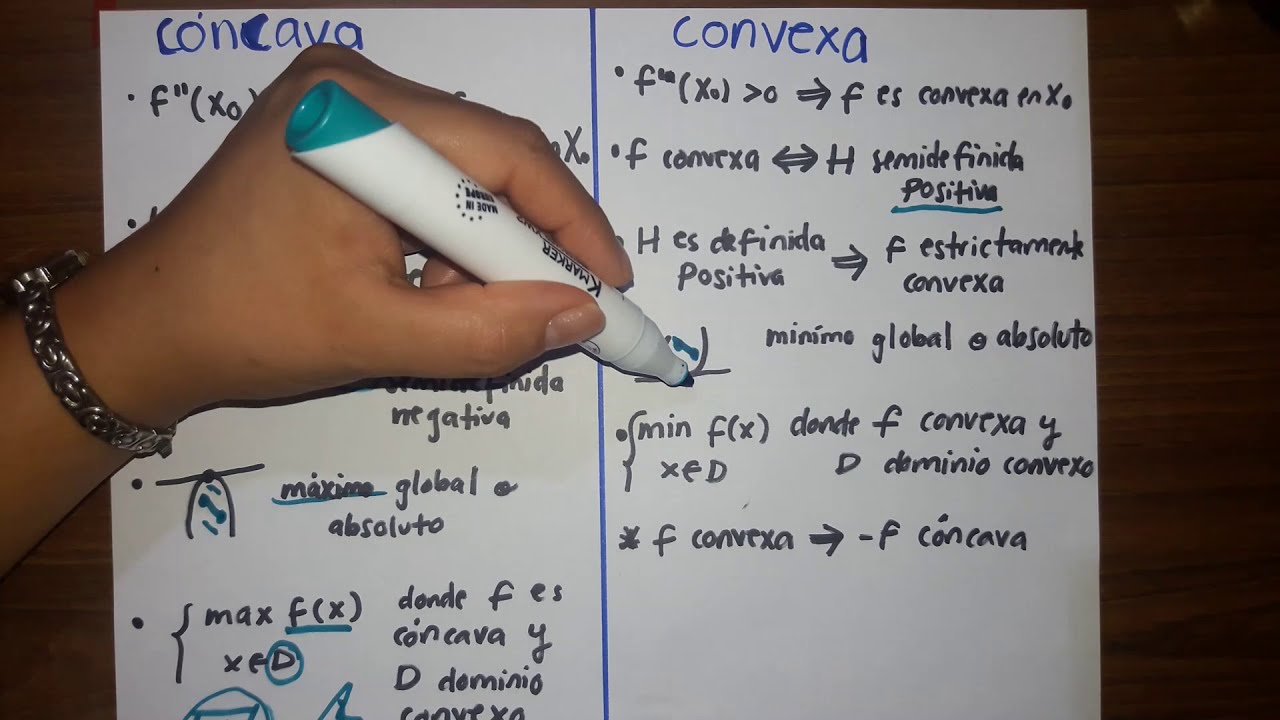 cóncava
• f"(x₀)
X₀
negativa
• máximo global o
absoluto
• { max f(x) donde f es
x∈D cóncava y
D dominio
convexa
convexa
• f"(x₀) >0 ⇒ f es convexa en x₀
• f convexa ⇔ H semidefinida
Positiva
• H es definida ⇒ f estrictamente
Positiva convexa
minímo global o absoluto
• { min f(x) donde f convexa y
x∈D D dominio convexo
* f convexa ⇒ -f cóncava
MADE IN
EUROPE
MARKER